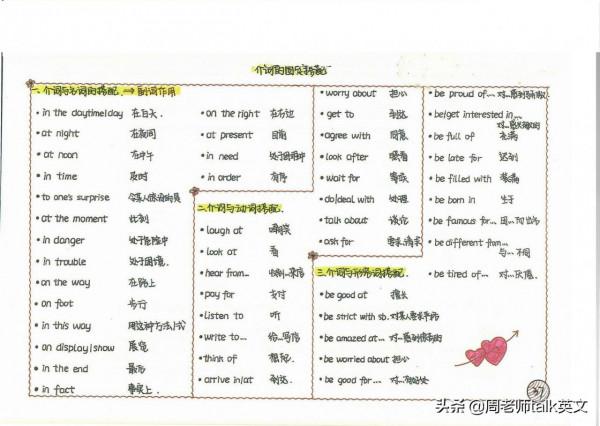 介词的固定搭配
一、介词与名词的搭配 ⇒ 副词作用
• in the daytime/day 在白天.
• at night 在夜间
• at noon 在中午
• in time 及时
• to one's surprise 令某人惊讶的是
• at the moment 此刻
• in danger 处于危险中
• in trouble 处于困境.
• on the way 在路上
• on foot 步行
• in this way 用这种方法
• on display/show 展览
• in the end 最后
• in fact 事实上.
• on the right 在右边
• at present 目前
• in need 处于困难中
• in order 有序
二.介词与动词搭配.
• laugh at 嘲笑
• look at 看
• hear from... 收到...来信
• pay for 支付
• listen to 听
• write to... 给...写信
• think of 想起.
• arrive in/at 到达.
• worry about 担心
• get to 到达
• agree with 同意
• look after 照看
• wait for 等候
• do/deal with 处理
• talk about 谈论
• ask for 要求,请求
三.介词与形容词搭配.
• be good at 擅长
• be strict with sb. 对某人要求严格
• be amazed at... 对...感到惊讶的
• be worried about 担心
• be good for... 对...有好处
• be proud of... 对...感到骄傲
• be/get interested in...
对...感兴趣的
• be full of 充满
• be late for 迟到
• be filled with 装满
• be born in 生于
• be famous for... 因...而出名
• be different from...
与...不同
• be tired of... 对...厌倦.
37
头条 @周老师talk英文